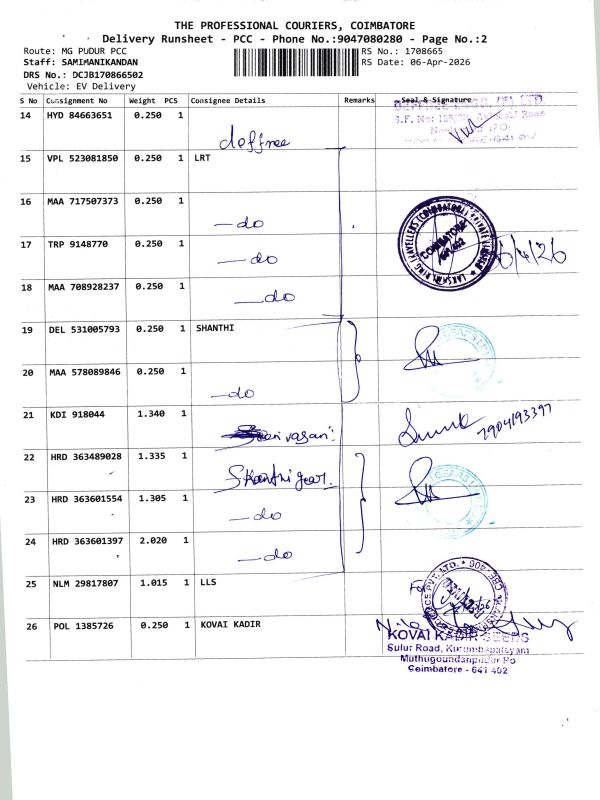 THE PROFESSIONAL COURIERS, COIMBATORE
Delivery Runsheet - PCC - Phone No.:9047080280 - Page No.:2
Route: MG PUDUR PCC
RS No.: 1708665
Staff: SAMIMANIKANDAN
RS Date: 06-Apr-2026
DRS No.: DCJB170866502
Vehicle: EV Delivery
S No Consignment No Weight PCS Consignee Details Remarks Seal & Signature
14 HYD 84663651 0.250 1
S.F. No:
Road
deffree
15 VPL 523081850 0.250 1 LRT
16 MAA 717507373 0.250 1
-do
17 TRP 9148770 0.250 1
-do
COIMBATORE
641 402
18 MAA 708928237 0.250 1
-do
19 DEL 531005793 0.250 1 SHANTHI
20 MAA 578089846 0.250 1
-do
21 KDI 918044 1.340 1
7904193397
22 HRD 363489028 1.335 1
23 HRD 363601554 1.305 1
-do
24 HRD 363601397 2.020 1
-do
25 NLM 29817807 1.015 1 LLS
For
26 POL 1385726 0.250 1 KOVAI KADIR
KOVAI KADIR
Sulur Road, Kurumbapalayam
Muthugoundanpudur Po
Coimbatore - 641 402